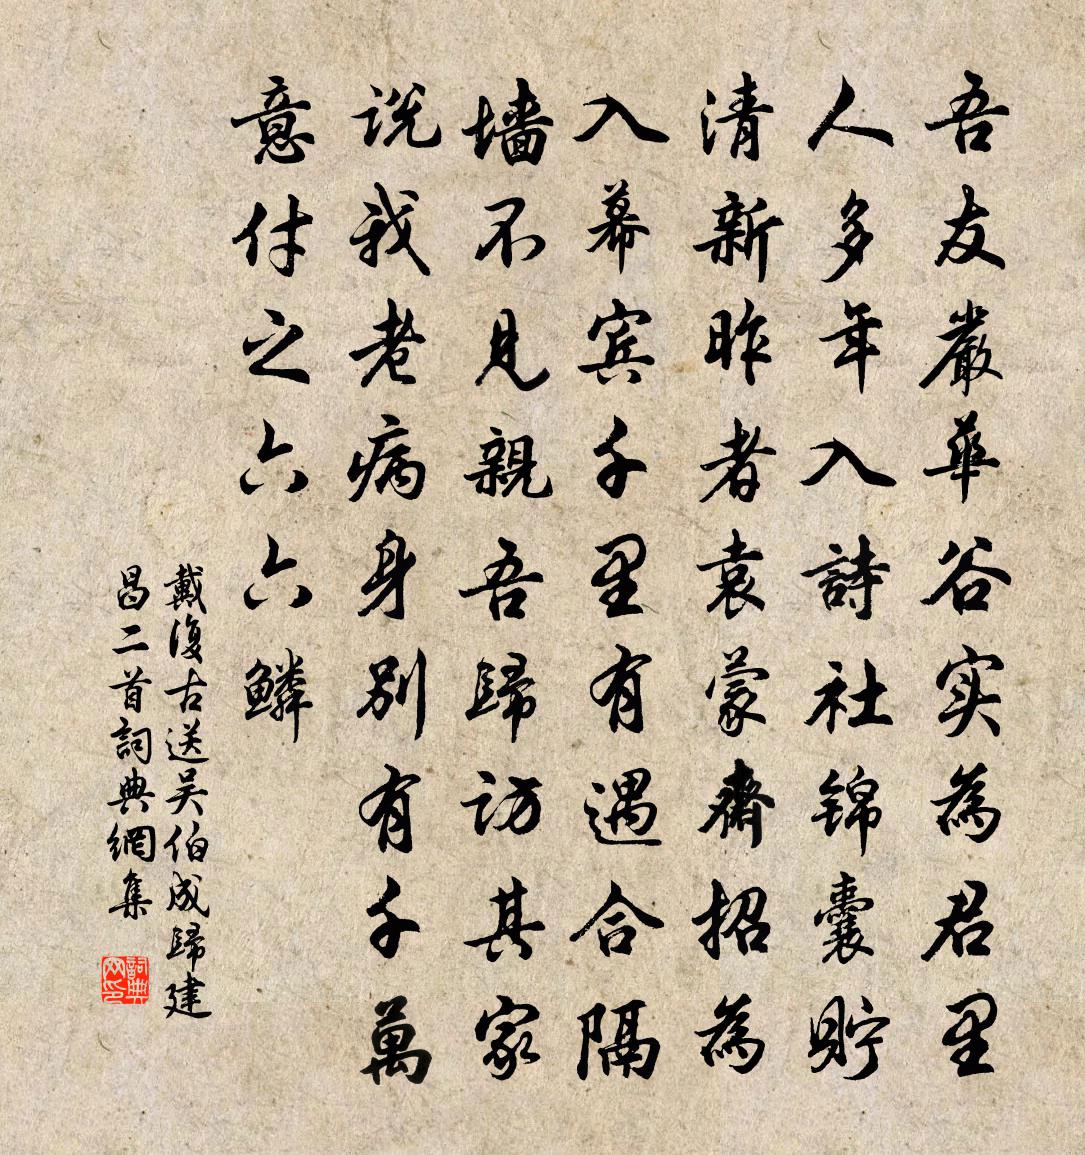 吾友嚴華谷实為君里
人多年入詩社锦囊貯
清新昨者袁蒙齋招為
入幕宾千里有遇合隔
墻不見親吾歸访其家
说我老病身别有千萬
意付之六六鳞
戴復古送吴伯成歸建
昌二首詞典網集
詞典网印